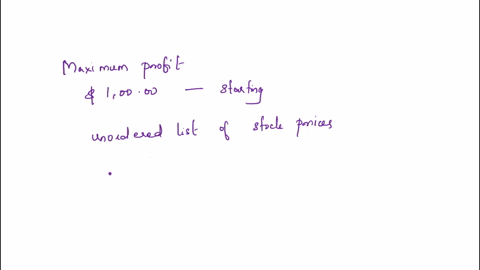 Maximum profit
$ 1,00.00 — starting
unordered list of stock prices